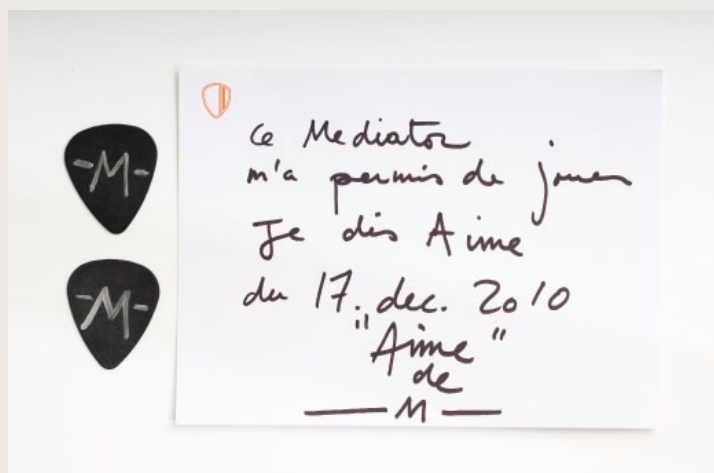 -M-
-M-
Ce Mediator
m'a permis de jouer
Je dis Aime
du 17. dec. 2010
"Aime"
de
— M —